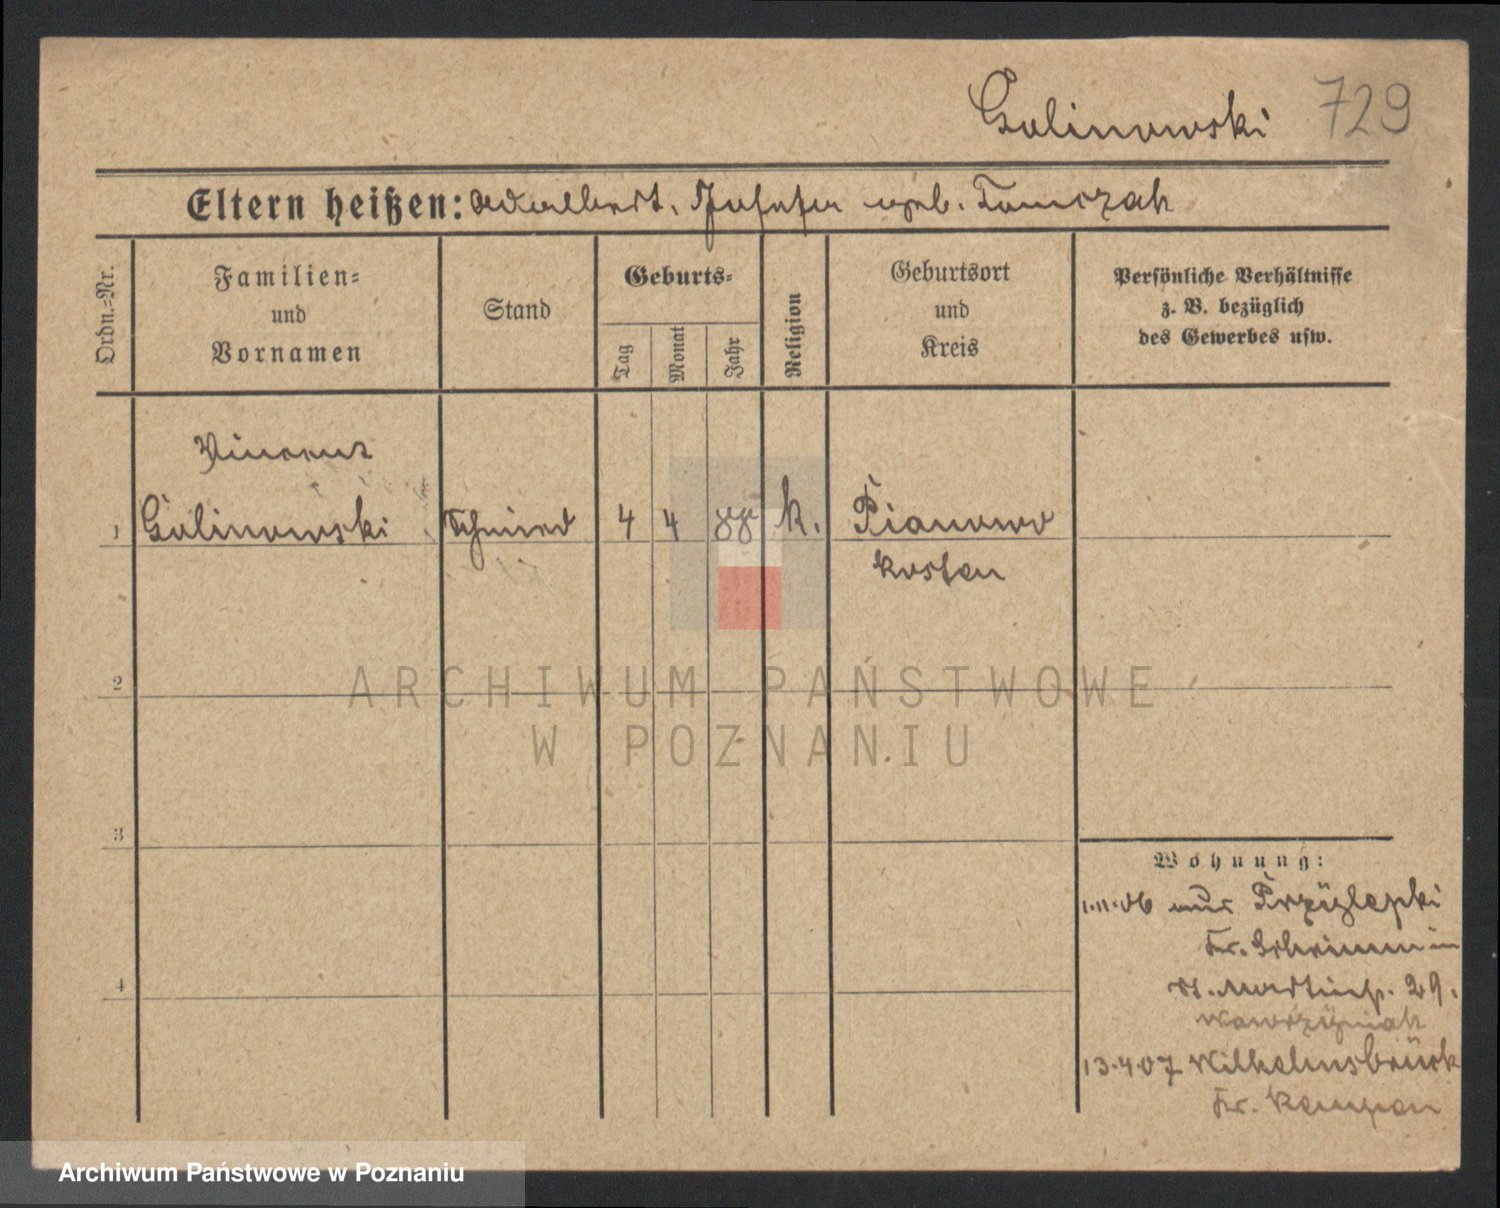 Galinowski 729
Eltern heißen: Adalbert, Josefa geb. Tomczak
Ordn.=Nr.
Familien=
und
Vornamen
Stand
Geburts=
Tag
Monat
Jahr
Religion
Geburtsort
und
Kreis
Persönliche Verhältnisse
z. B. bezüglich
des Gewerbes usw.
Vincent
1 Galinowski Schmied 4 4 88 k. Pianowo
Kosten
2
3
4
Wohnung:
1.11.06 aus Przylepki
Kr. Schrimm in
St. Martinstr. 29.
Wawrzyniak
13.4.07 Wilhelmsbrück
Kr. Kempen
ARCHIWUM PAŃSTWOWE
W POZNANIU
Archiwum Państwowe w Poznaniu